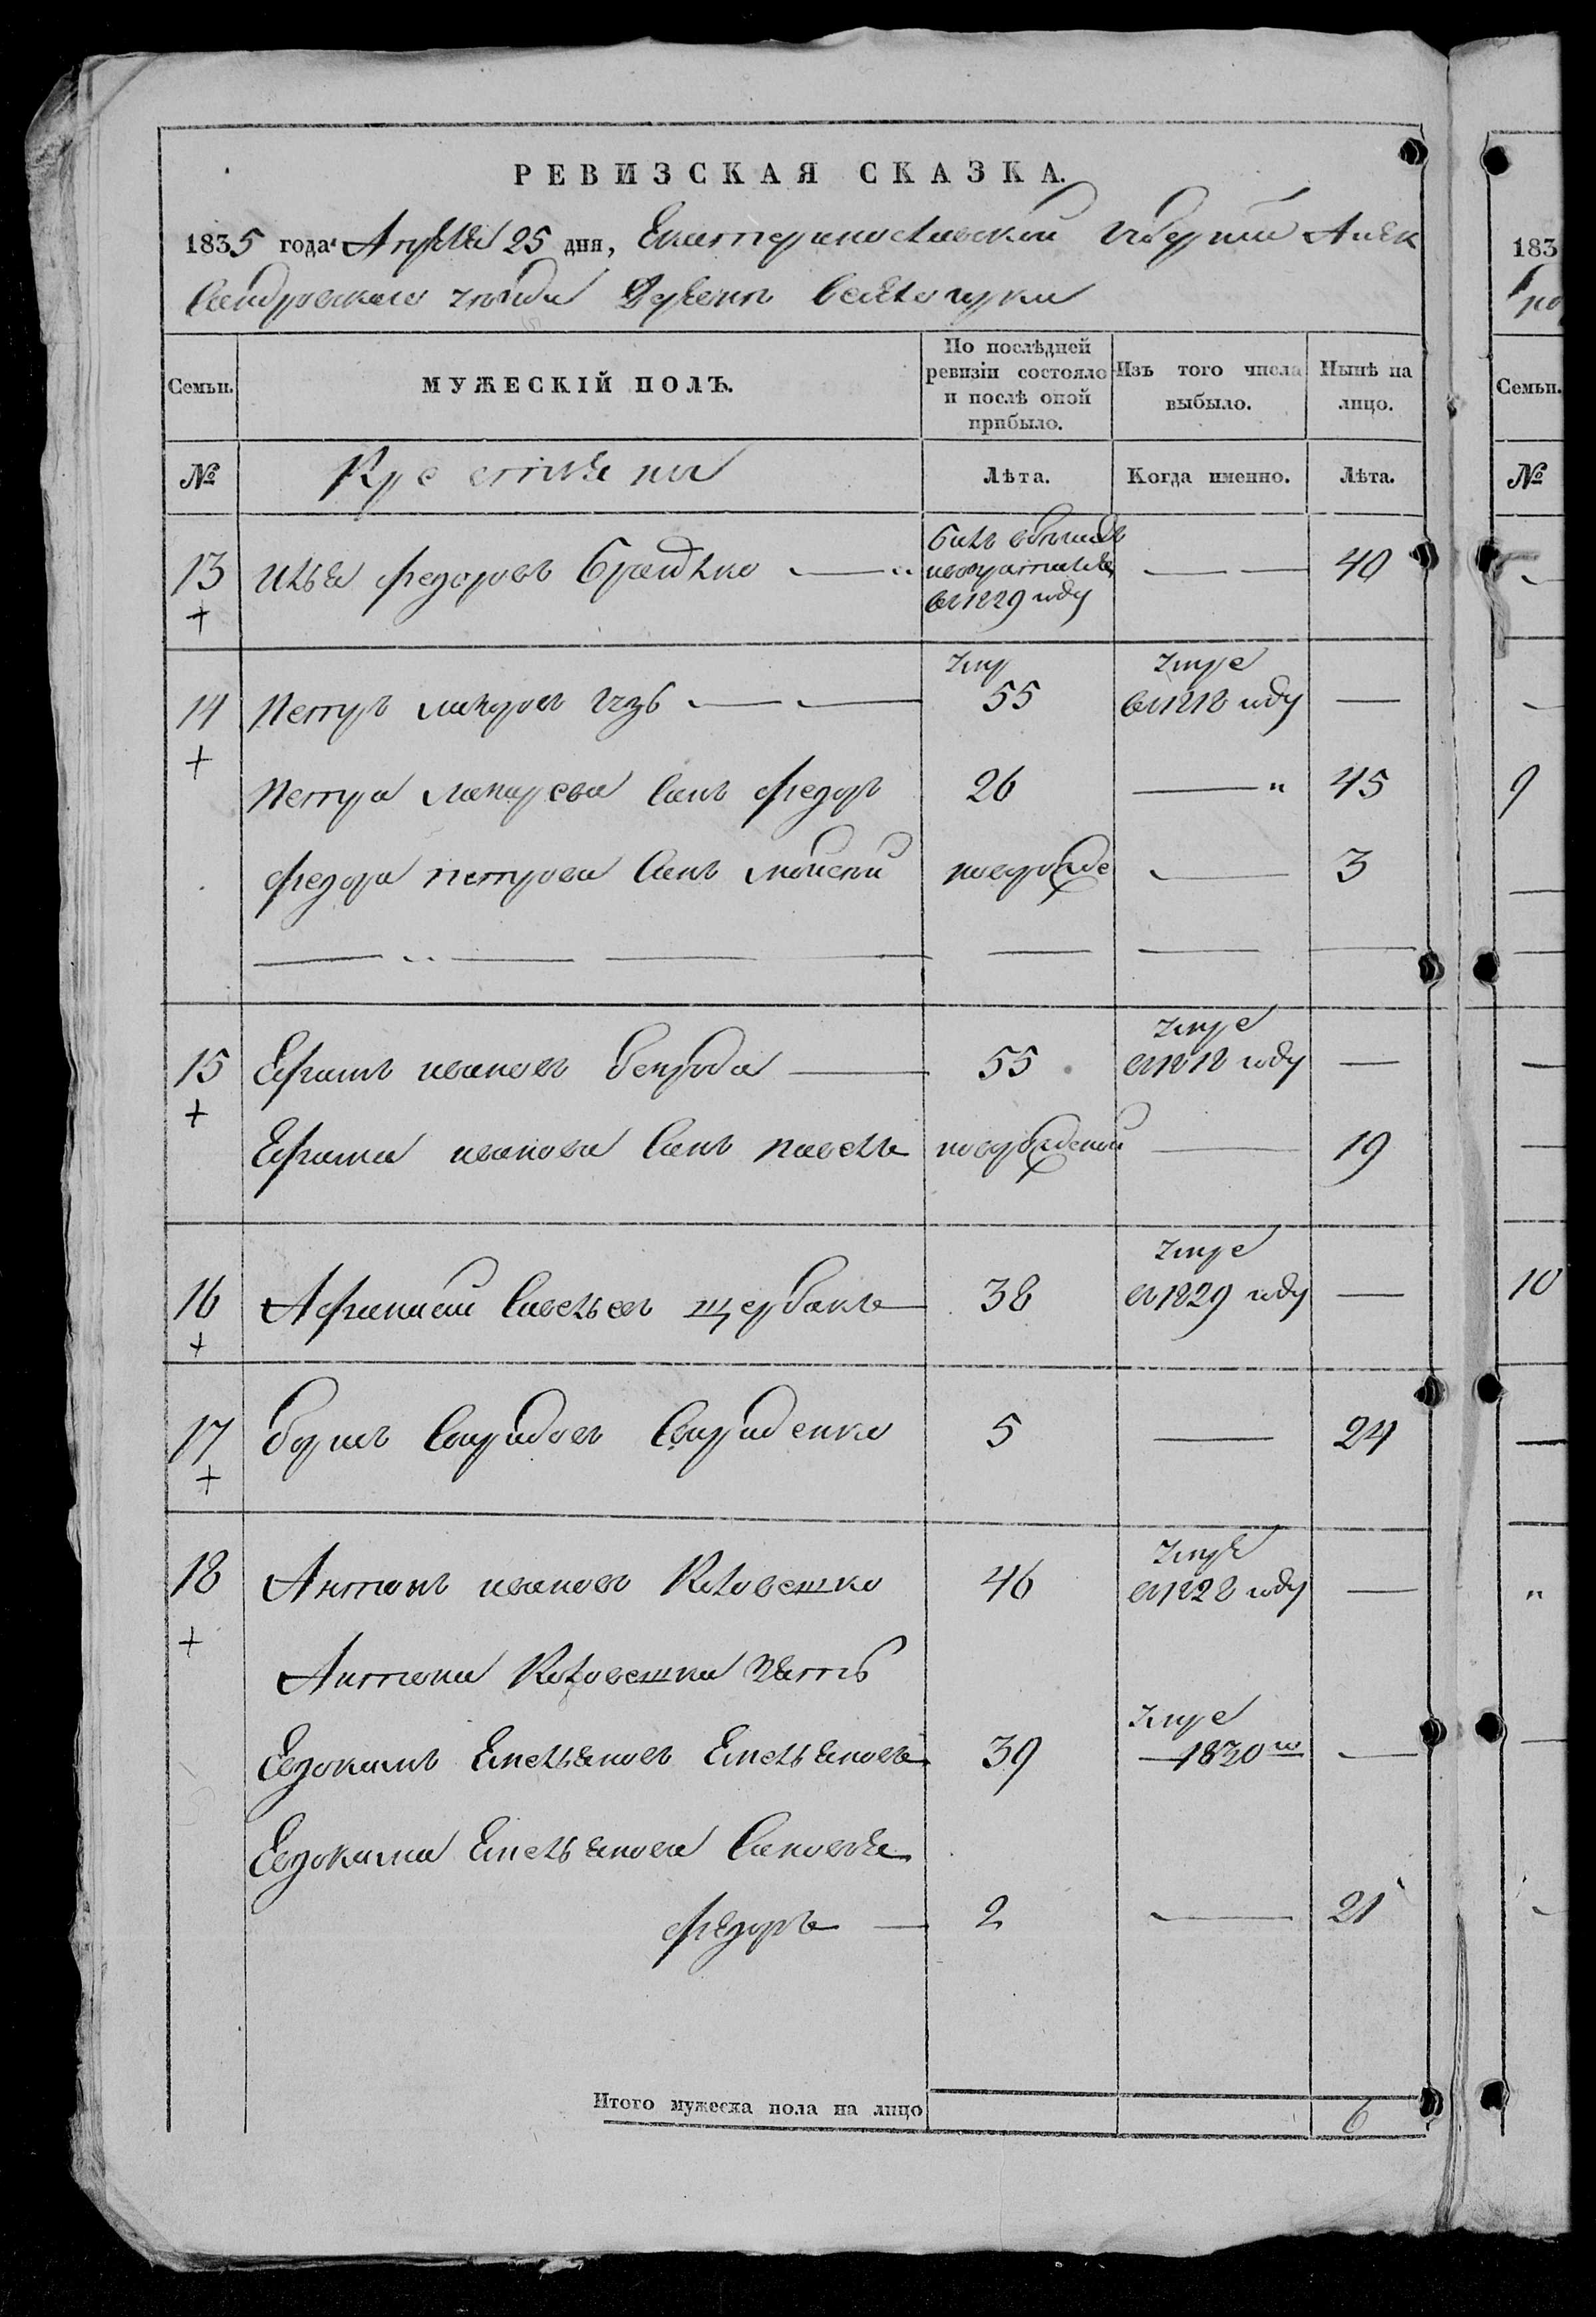 РЕВИЗСКАЯ СКАЗКА.
1835 года Апреля 25 дня, Екатеринославской Губернии Алек
сандровского уезда Деревни
Семьи.
МУЖЕСКІЙ ПОЛЪ.
По послѣдней ревизіи состояло и послѣ оной прибыло.
Изъ того числа выбыло.
Нынѣ на лицо.
№
Крестьяне
Лѣта.
Когда именно.
Лѣта.
13 Илья Федоровъ — былъ в бегах — 40
возвратился
в 1829 году
+
умре
14 Петръ Макаровъ — 55 в 1818 году —
+
Петра Макарева сынъ Федоръ 26 — 45
Федора Петрова сынъ Мойсей новорожде — 3
умре
15 Ефимъ Ивановъ — 55 в 1818 году —
+
Ефима Иванова сынъ Павелъ новорожденой — 19
умре
16 Афанасий Савельевъ Щербакъ 38 в 1829 году —
+
17 Борисъ Спиридовъ Спириденко 5 — 24
+
умре
18 Антонъ Ивановъ Коловешко 46 в 1828 году —
+
Антона Коловешка зять
умре
Евдокимъ Емельяновъ Емельяновъ 39 1830 го —
Евдокима Емельянова сыновья
Федоръ — 2 — 21
Итого мужеска пола на лицо 6
183
Семьи.
№
9
10